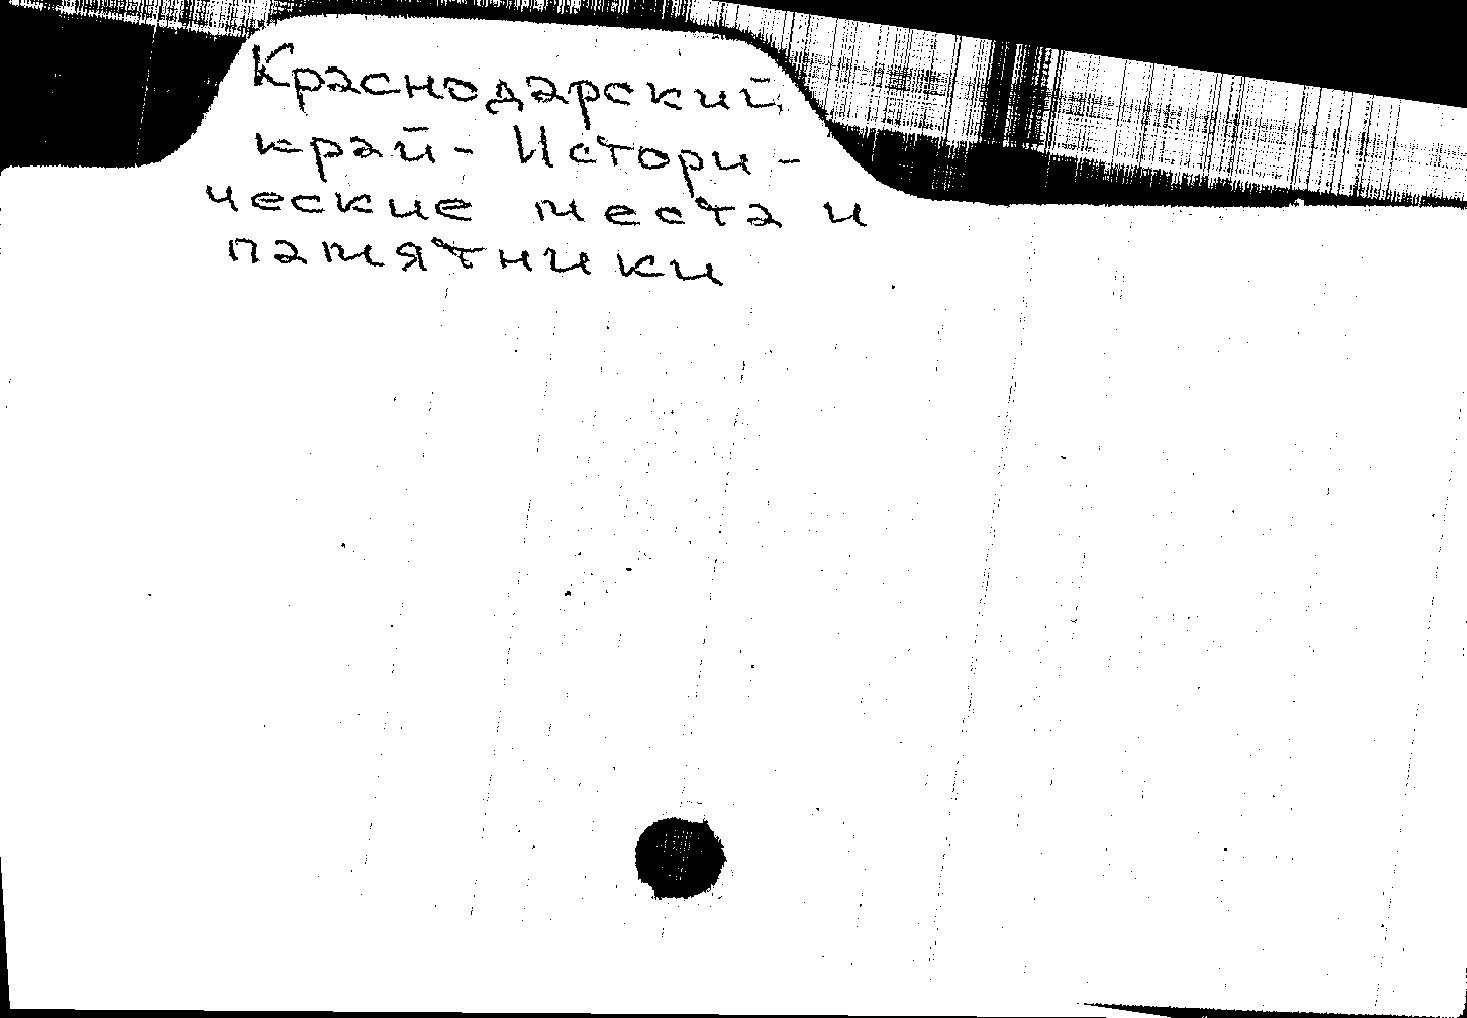 Краснодарский
край - Истори-
ческие места и
памятники